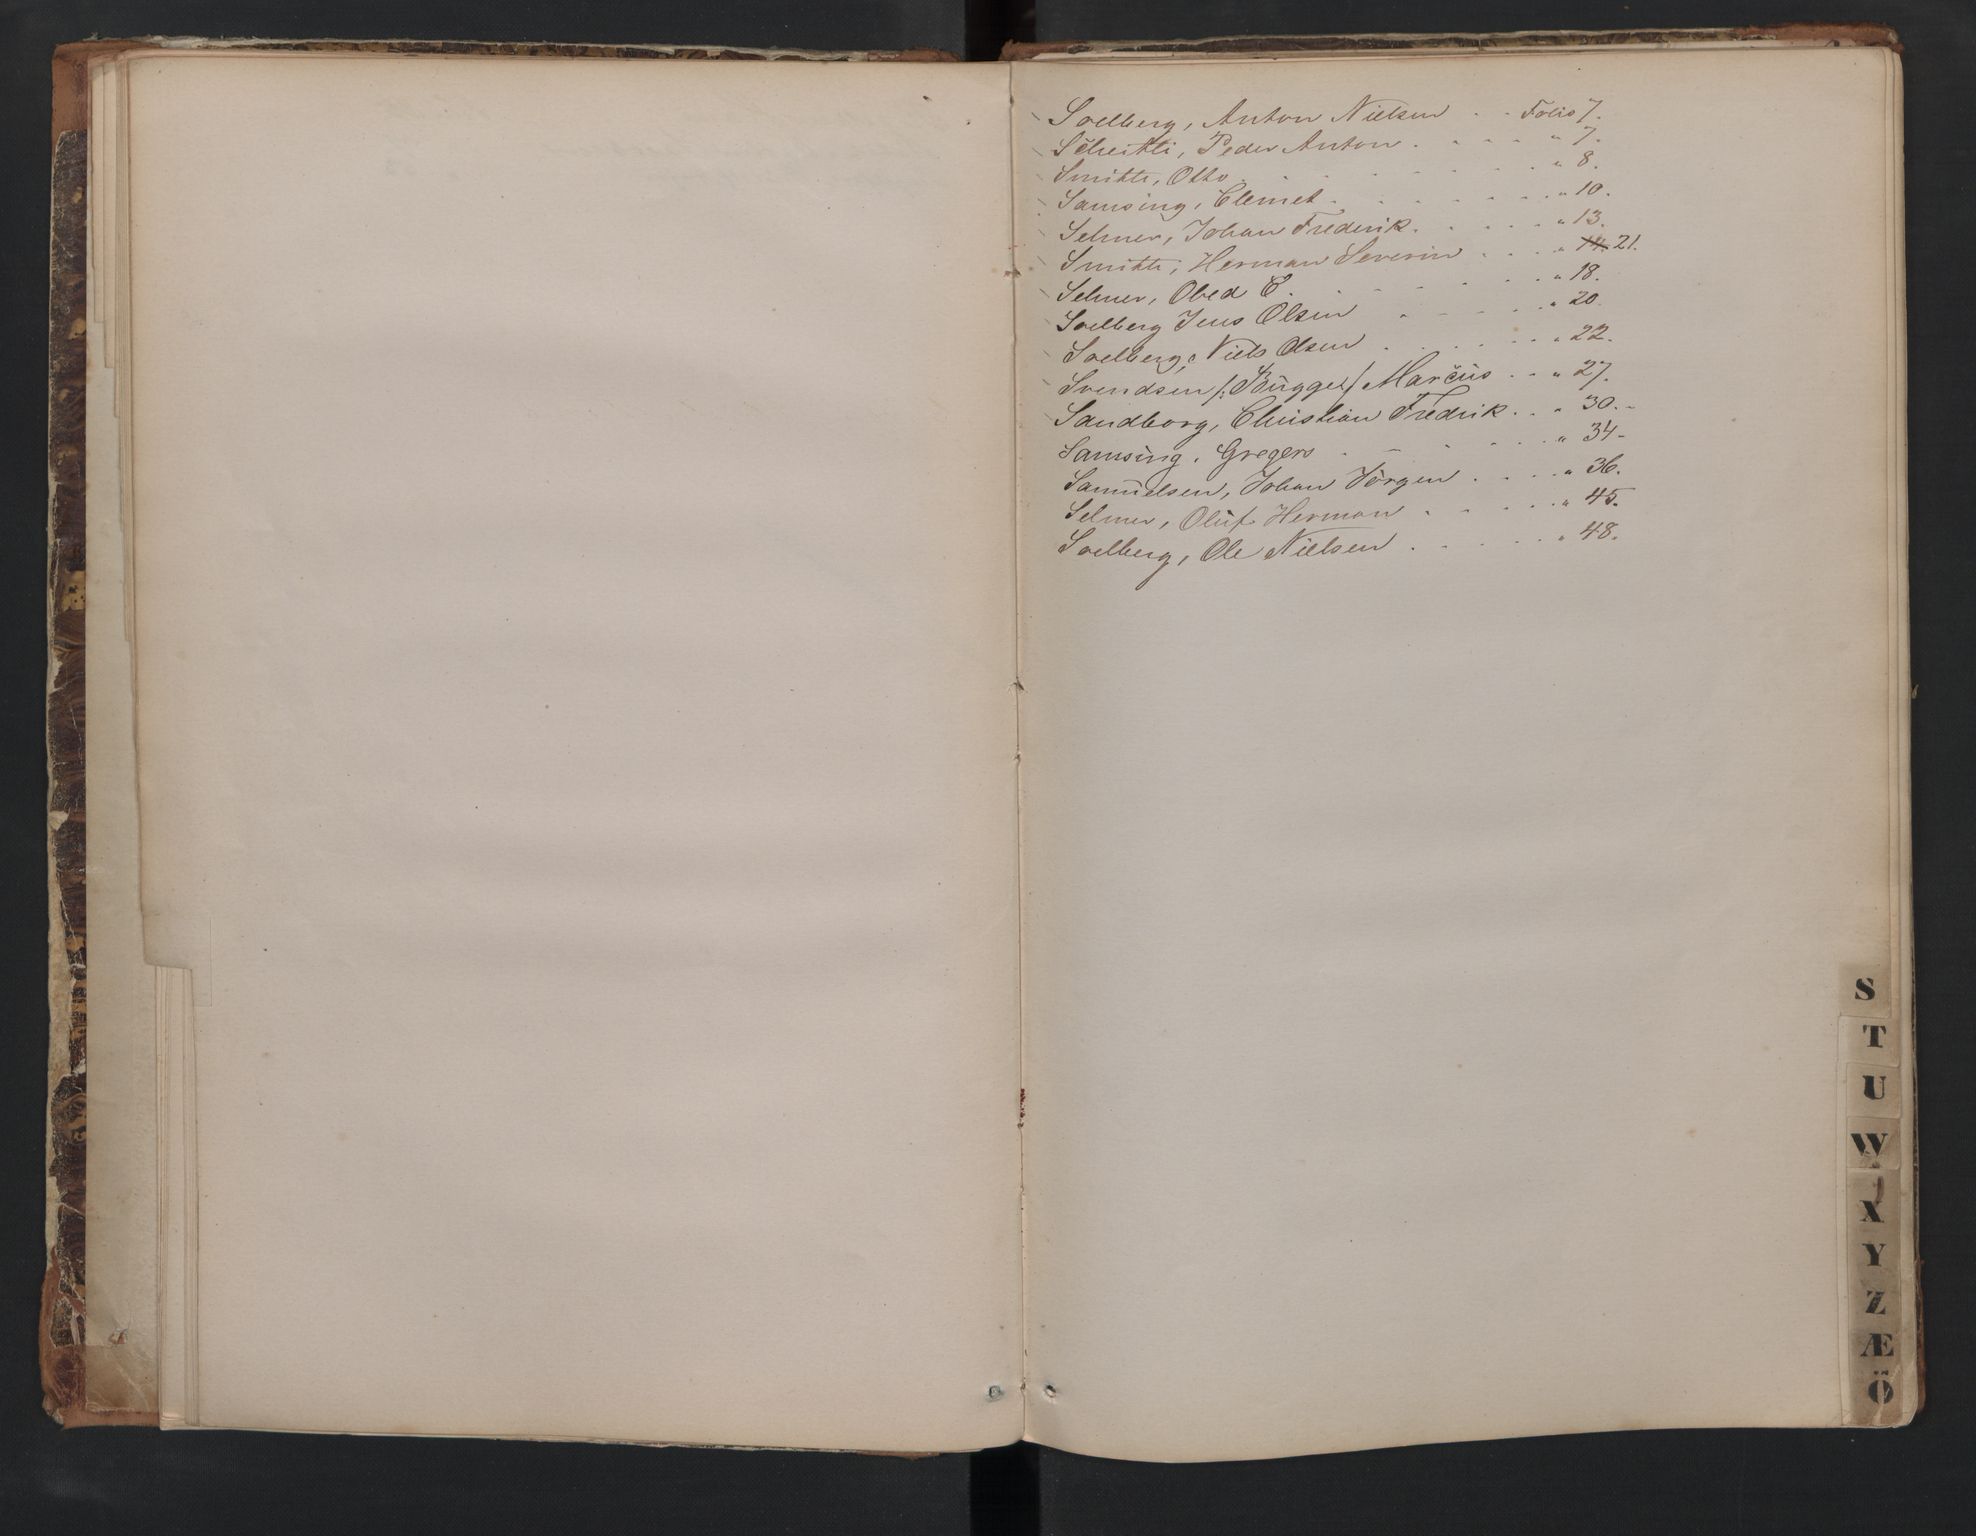 Soelberg, Anton Nielsen . . Folio 7.
Peder Anton . . . . . " 7.
Smith, Otto . . . . . . . " 8.
Samsing, Clemet . . . . . . . " 10.
Selmer, Johan Fredrik . . . . . " 13.
Smith, Herman Severin . . . " 14. 21.
Selmer, Obed C. . . . . . " 18.
Soelberg Jens Olsen . . . . . " 20.
Soelberg, Niels Olsen . . . . . . " 22.
Svendsen /: Bugge :/ Marcus . . " 27.
Sandborg, Christian Fredrik . . " 30.-
Samsing, Gregers . - . . . . . " 34-
Samuelsen, Johan Jörgen . . . . " 36.
Selmer, Oluf Herman . . . . . " 45.
Soelberg, Ole Nielsen . . . . . " 48.
S
T
U
W
X
Y
Z
Æ
Ö